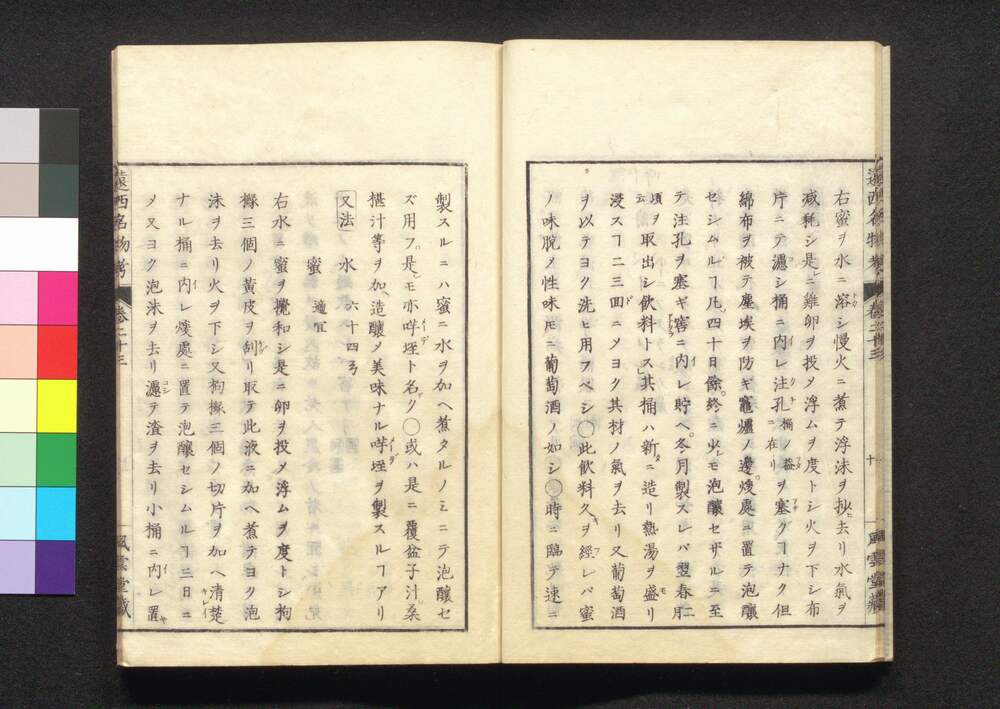 右蜜ヲ水ニ溶シ慢火ニ煮テ浮沫ヲ抄去リ水氣ヲ
減耗シ是ニ雞卵ヲ投〆浮ムヲ度トシ火ヲ下シ布
片ニテ濾シ桶ニ内レ注孔桶ノ益ニ在リヲ塞クヿナク但
綿布ヲ被テ塵埃ヲ防ギ竈爐ノ邊煖處ニ置テ泡釀
セシムルヿ凡四十日餘終ニ少モ泡釀セザルニ至
テ注孔ヲ塞ギ窖ニ内レ貯ヘ冬月製スレバ翌春二月
頃ヲ取出シ飲料トス其桶ハ新ニ造リ熱湯ヲ盛リ
浸スヿ二三回ニ〆ヨク其材ノ氣ヲ去リ又葡萄酒
ヲ以テヨク洗ヒ用フベシ○此飲料久ヲ經レバ蜜
ノ味脱〆性味𪜈ニ葡萄酒ノ如シ○時ニ臨テ速ニ
遠西名物考 卷二十三 十一 風雲堂藏
製スルニハ蜜ニ水ヲ加ヘ煮タルノミニテ泡釀セ
ズ用フ是モ亦咩垤ト名ク○或ハ是ニ覆盆子汁桑
椹汁等ヲ加造釀〆美味ナル咩垤ヲ製スルヿアリ
又法 水 六十四弓
蜜 適宜
右水ニ蜜ヲ攪和シ是ニ卵ヲ投〆浮ムヲ度トシ狗
櫞三個ノ黃皮ヲ刮リ取テ此液ニ加ヘ煮テヨク泡
沫ヲ去リ火ヲ下シ又狗櫞三個ノ切片ヲ加ヘ清楚
ナル桶ニ内レ煖處ニ置テ泡釀セシムルヿ三日ニ
〆又ヨク泡沫ヲ去リ濾テ渣ヲ去リ小桶ニ内レ置
遠西名物考 卷二十三 風雲堂藏